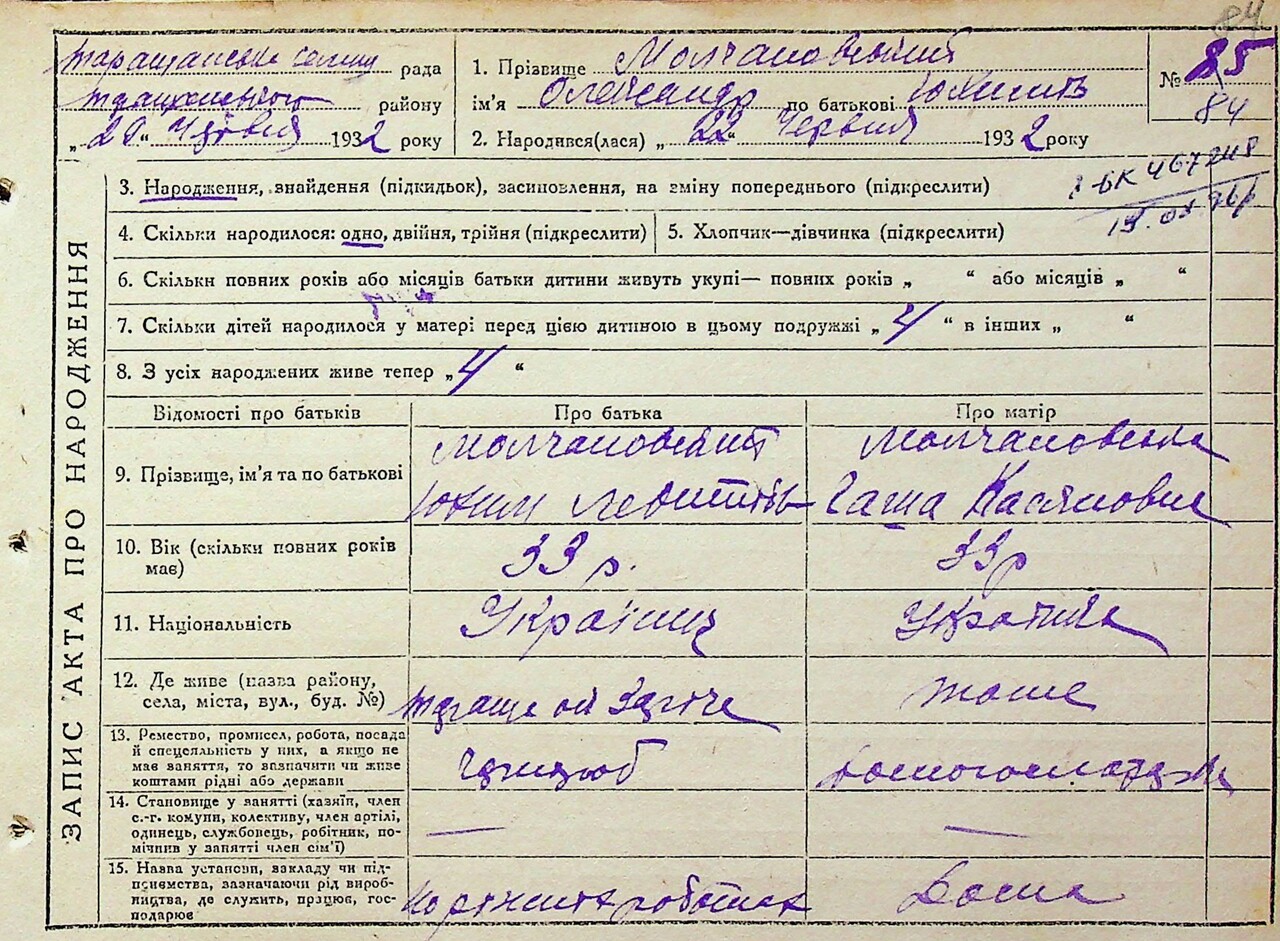 84
рада 1. Прізвище Молчановський № 85
району ім'я Олександр по батькові 84
„ “ 1932 року 2. Народився(лася) „ 22 “ Червня 1932 року
3. Народження, знайдення (підкидьок), засиновлення, на зміну попереднього (підкреслити)
4. Скільки народилося: одно, двійня, трійня (підкреслити) 5. Хлопчик—дівчинка (підкреслити)
6. Скільки повних років або місяців батьки дитини живуть укупі— повних років „ “ або місяців „ “
7. Скільки дітей народилося у матері перед цією дитиною в цьому подружжі „ 4 “ в інших „ “
8. З усіх народжених живе тепер „ 4 “
ЗАПИС АКТА ПРО НАРОДЖЕННЯ
Відомості про батьків Про батька Про матір
9. Прізвище, ім'я та по батькові Молчановський Молчановська
Юхим Гаша Касяновна
10. Вік (скільки повних років має) 33 р. 33 р
11. Національність Українец Українка
12. Де живе (назва району,
села, міста, вул., буд. №) тоже
13. Ремество, промисел, робота, посада
й спецсяльність у них, а якщо не
має заняття, то зазначити чи живе
коштами рідні або держави
14. Становище у занятті (хазяїн, член
с.-г. комуни, колективу, член артілі,
одинець, службовець, робітник, по-
мічник у занятті член сім'ї) — —
15. Назва установи, закладу чи під-
приємства, зазначаючи рід вироб-
ництва, де служить, працює, гос-
подарює Дома